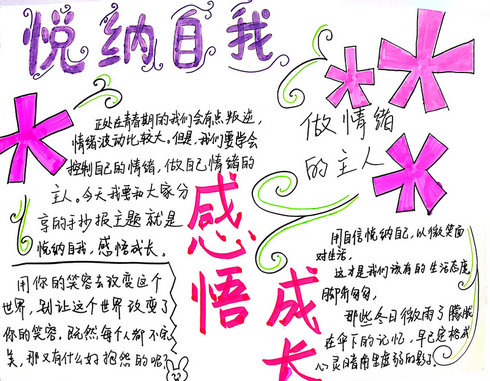 悦纳自我
正处在青春期的我们会有点叛逆,
情绪波动比较大。但是,我们要学会
控制自己的情绪,做自己情绪的
主人。今天我要和大家分
享的手抄报主题就是
悦纳自我,感悟成长。
用你的笑容去改变这个
世界,别让这个世界改变了
你的笑容。既然每个人都不完
美,那又有什么好抱怨的呢?
感悟
成长
做情绪
的主人
用自信悦纳自己,以微笑面
对生活。
这才是我们该有的生活态度
脚步匆匆,
那些冬日微雨了朦胧
在伞下的记忆,早已定格成
心灵